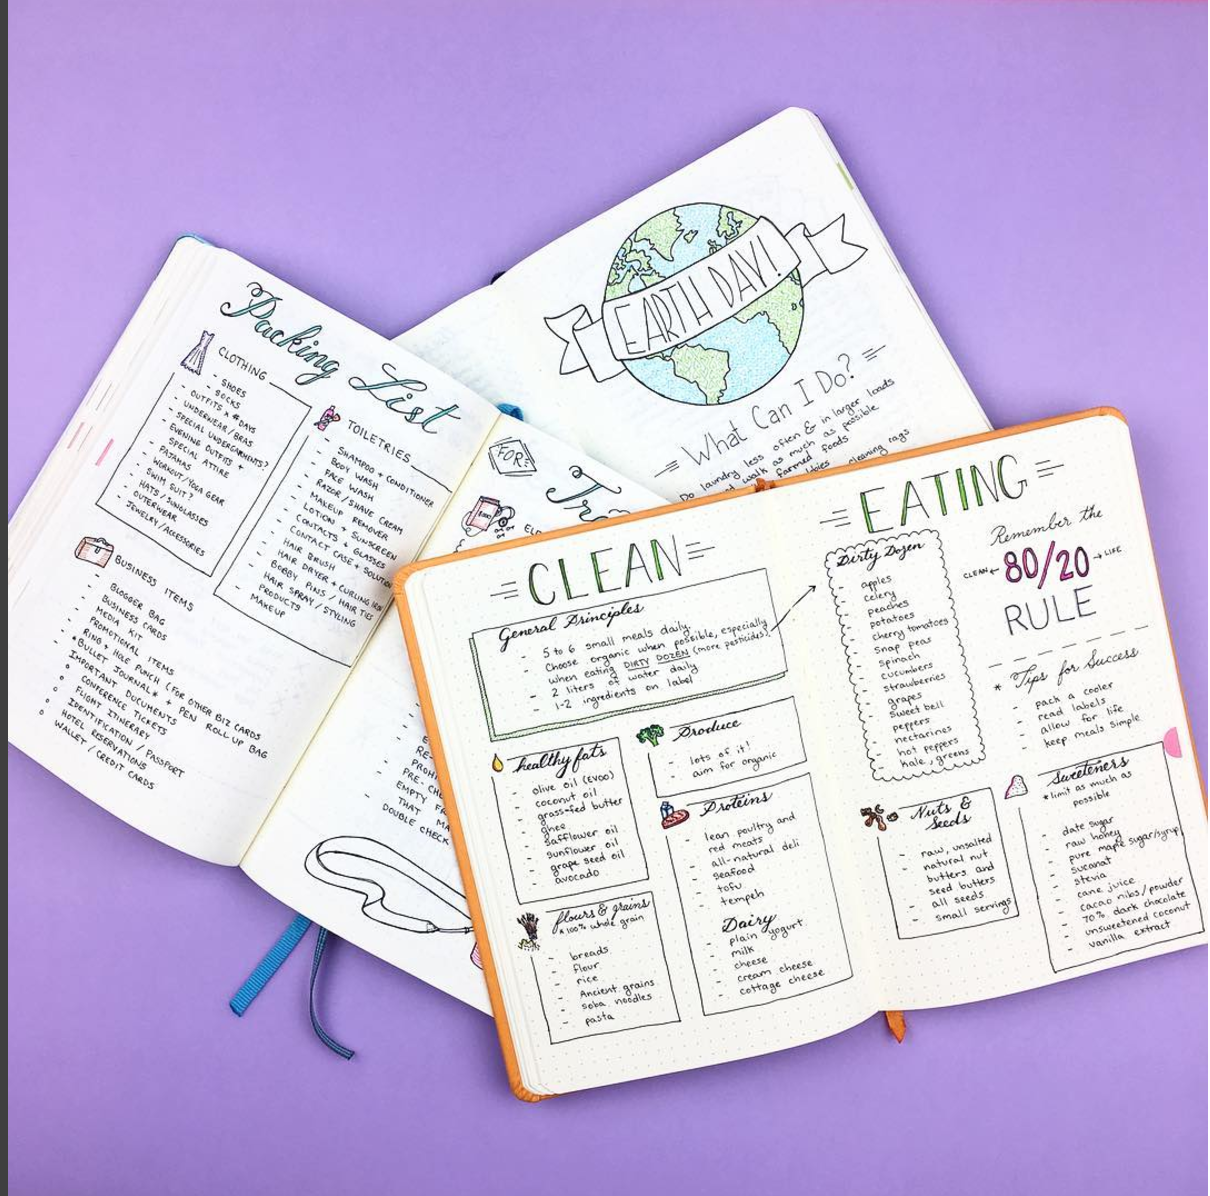 Packing List
CLOTHING
- SHOES
- SOCKS
- OUTFITS x # DAYS
- UNDERWEAR/BRAS
- SPECIAL UNDERGARMENTS?
- EVENING OUTFITS +
SPECIAL ATTIRE
- PAJAMAS
- WORKOUT/YOGA GEAR
- SWIM SUIT?
- HATS/SUNGLASSES
- OUTERWEAR
- JEWELRY/ACCESSORIES
TOILETRIES
- SHAMPOO + CONDITIONER
- BODY WASH
- FACE WASH
- RAZOR/SHAVE CREAM
- MAKEUP REMOVER
- LOTION + SUNSCREEN
- CONTACTS + GLASSES
- CONTACT CASE + SOLUTION
- HAIR BRUSH
- HAIR DRYER + CURLING IRON
- BOBBY PINS / HAIR TIES
- HAIR SPRAY / STYLING
PRODUCTS
- MAKEUP
BUSINESS ITEMS
- BLOGGER BAG
- BUSINESS CARDS
- MEDIA KIT
- PROMOTIONAL ITEMS
- RING + HOLE PUNCH (FOR OTHER BIZ CARDS
- *BULLET JOURNAL* + PEN ROLL UP BAG
- IMPORTANT DUCUMENTS
o CONFERENCE TICKETS
o FLIGHT ITINERARY
o IDENTIFICATION / PASSPORT
o HOTEL RESERVATIONS
o WALLET / CREDIT CARDS
FOR
DOUBLE CHECK
EARTH DAY!
What Can I Do?
Do laundry less often & in larger loads
walk as much as possible
farmed foods
cleaning rags
CLEAN
General Principles
- 5 to 6 small meals daily.
- Choose organic when possible, especially
when eating DIRTY DOZEN (more pesticides).
- 2 liters of water daily
- 1-2 ingredients on label
healthy fats
- olive oil (EVOO)
- coconut oil
- grass-fed butter
- ghee
- safflower oil
- sunflower oil
- grape seed oil
- avocado
flours & grains
* 100% whole grain
- breads
- flour
- rice
- Ancient grains
- soba noodles
- pasta
Produce
- lots of it!
- aim for organic
Proteins
- lean poultry and
red meats
- all-natural deli
- seafood
- tofu
- tempeh
Dairy
- plain yogurt
- milk
- cheese
- cream cheese
- cottage cheese
EATING
Dirty Dozen
- apples
- celery
- peaches
- potatoes
- cherry tomatoes
- snap peas
- spinach
- cucumbers
- strawberries
- grapes
- sweet bell
peppers
- nectarines
- hot peppers
- kale, greens
Remember the
CLEAN ← 80/20 → LIFE
RULE
* Tips for Success
- pack a cooler
- read labels
- allow for life
- keep meals simple
Nuts &
Seeds
- raw, unsalted
- natural nut
butters and
seed butters
- all seeds
- small servings
Sweeteners
* limit as much as
possible
- date sugar
- raw honey
- pure maple sugar/syrup
- sucanat
- stevia
- cane juice
- cacao nibs/powder
- 70% dark chocolate
- unsweetened coconut
- vanilla extract